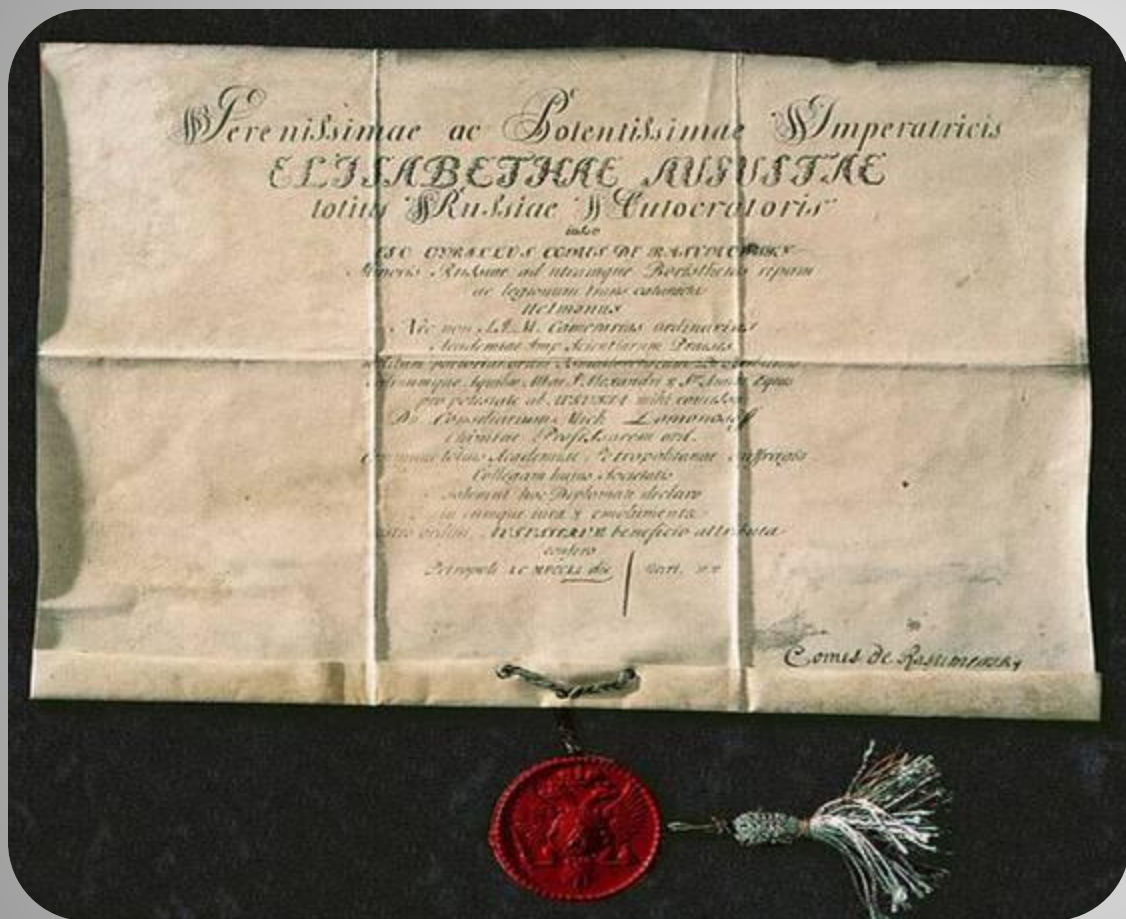 Serenissimae ac Potentissimae Imperatricis
ELISABETHAE AUGUSTAE
totius Russiae Autocratoris
iussu
EGO CYRILLUS COMES DE RASUMOWSKY
Minoris Russiae ad utramque Boristhenis ripam
ac legionum trans
Hetmanus
Nec non S. I. M. Camerarius ordinarius
Academiae Imp Scientiarum Praeses
Aquilae Albae S. Alexandri & Stae Annae Eques
pro potestate ab AUGUSTA mihi concessa
Dn. Consiliarium Mich Lomonosoff
Chimiae Professorem ord.
totius Academiae Petropolitanae suffragio
Collegam huius Societatis
solemni hoc Diplomate declaro
in eumque iura & emolumenta
ordini AUGUSTAE beneficio attributa
confero
Petropoli die
Comes de Rasumowsky